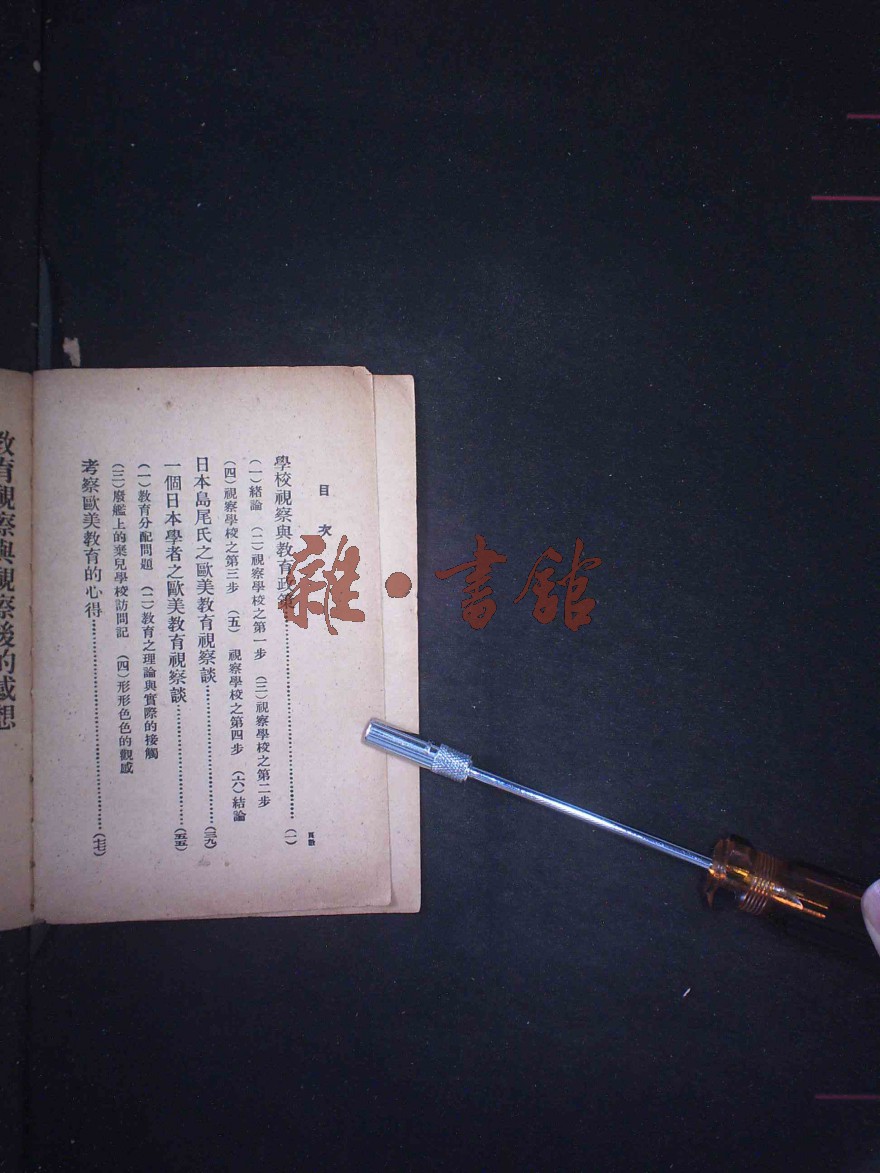 目次
頁數
學校視察與教育政策……(一)
(一)緒論 (二)視察學校之第一步 (三)視察學校之第二步
(四)視察學校之第三步 (五)視察學校之第四步 (六)結論
日本島尾氏之歐美教育視察談……(三九)
一個日本學者之歐美教育視察談……(五五)
(一)教育分配問題 (二)教育之理論與實際的接觸
(三)廢艦上的棄兒學校訪問記 (四)形形色色的觀感
考察歐美教育的心得……(七七)
教育視察與視察後的感想
雜·書館